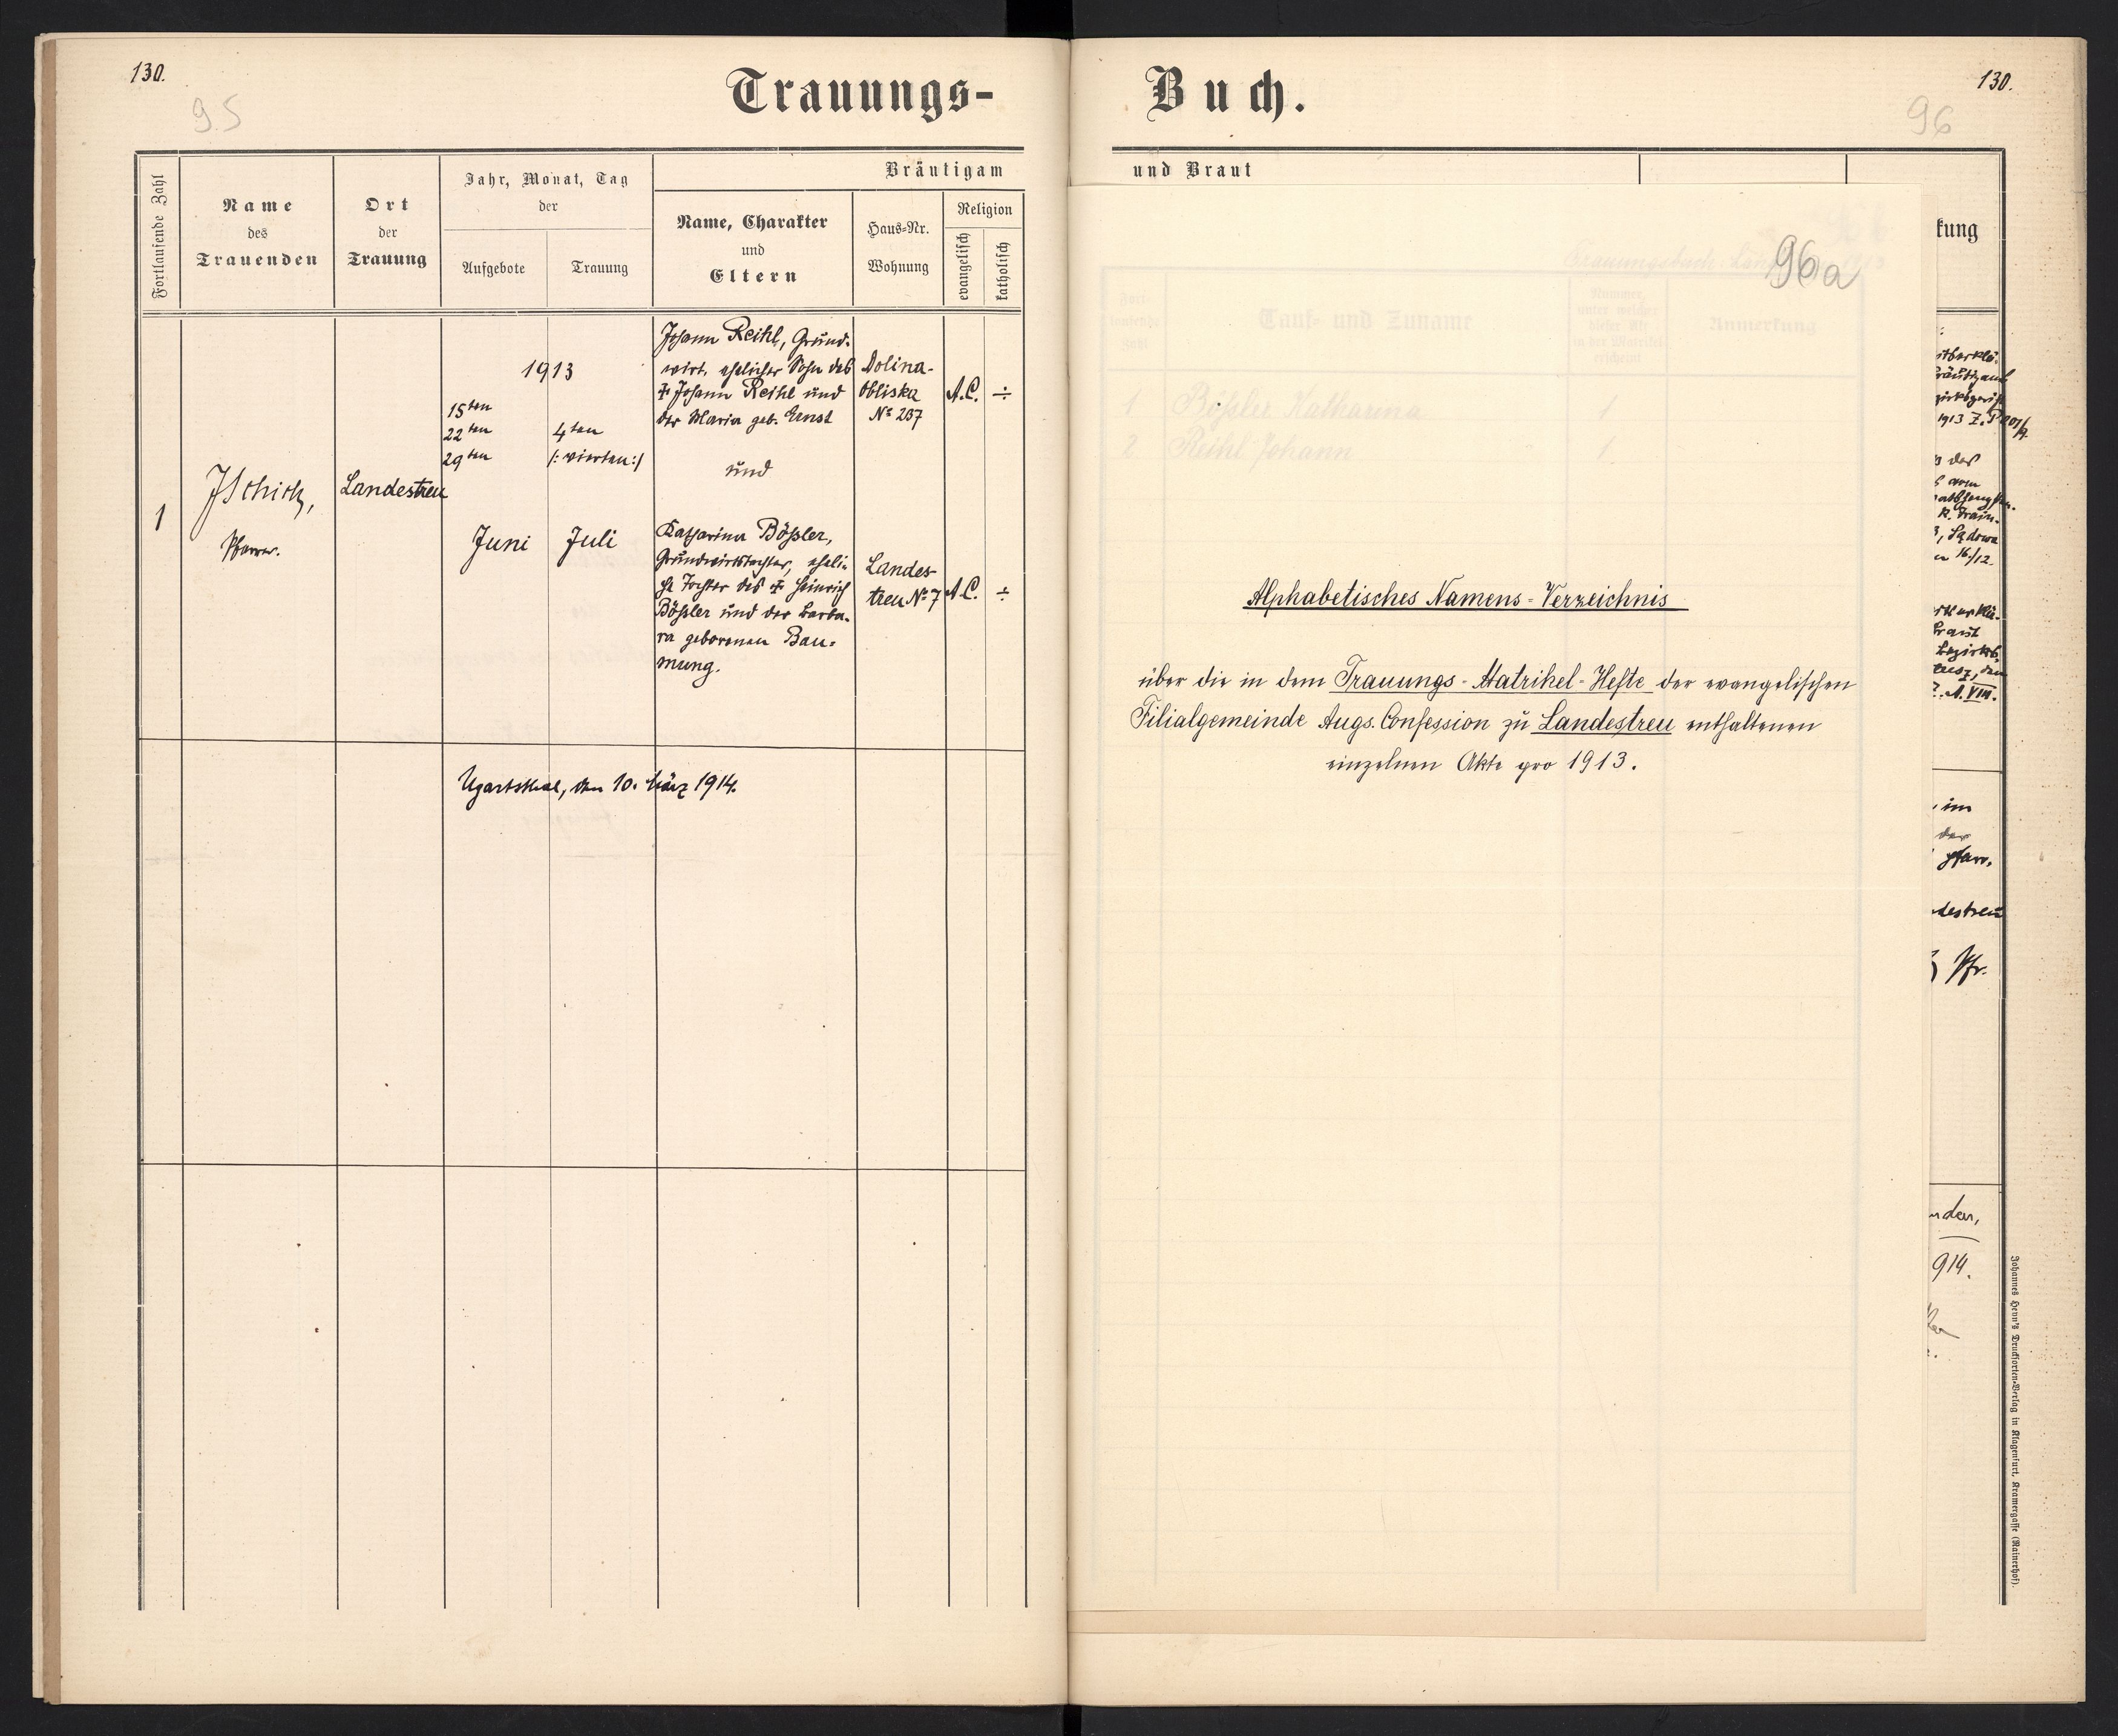 130.
95
Trauungs-
Fortlaufende Zahl
Name
des
Trauenden
Ort
der
Trauung
Jahr, Monat, Tag
der
Aufgebote
Trauung
Bräutigam
Name, Charakter
und
Eltern
Haus-Nr.
Wohnung
Religion
evangelisch
katholisch
1
Pfarrer.
Landestreu
1913
15ten
22ten
29ten
4ten
/: vierten :/
Juni
Juli
Johann Reihl, Grund-
wirt, ehelicher Sohn des
☩ Johann Reihl und
der Maria geb. Ernst
Dolina-
Obliska
№ 237
A.C.
÷
und
Katharina Bößler,
Grundwirtstochter, eheli-
che Tochter des ☩ Heinrich
Bößler und der Barba-
ra geborenen Bau-
mung.
Landes-
treu № 7
A.C.
÷
Ugartsthal, den 10. März 1914.
Buch.
130.
96
und Braut
kung
96a
Trauungsbuch
Fort-
laufende
Zahl
Tauf- und Zuname
Nummer,
unter welcher
dieser Akt
in der Matrikel
erscheint
Anmerkung
1 Bößler Katharina 1
2 Reihl Johann 1
Alphabetisches Namens-Verzeichnis
über die in dem Trauungs-Matrikel-Hefte der evangelischen
Filialgemeinde Augs. Confession zu Landestreu enthaltenen
einzelnen Akte pro 1913.
räutigams
1913 Z. P
des
vom
K. Train-
, Sądowa
16/12.
Braut
Bezirks-
A. VIII.
im
der
Pfarr-
destreu
Pfr.
nden,
914.
Johannes Heyn's Drucksorten-Verlag in Klagenfurt, Kramergasse (Rainerhof).